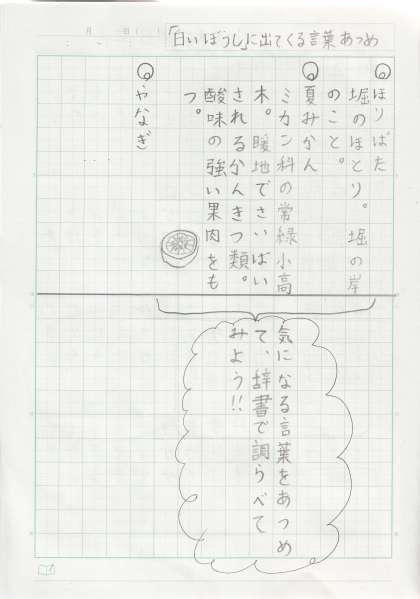 月　日（　）
「白いぼうし」に出てくる言葉あつめ
ほりばた
堀のほとり。堀の岸
のこと。
夏みかん
ミカン科の常緑小高
木。暖地でさいばい
されるかんきつ類。
酸味の強い果肉をも
つ。
やなぎ
気になる言葉をあつめ
て、辞書で調らべて
みよう!!